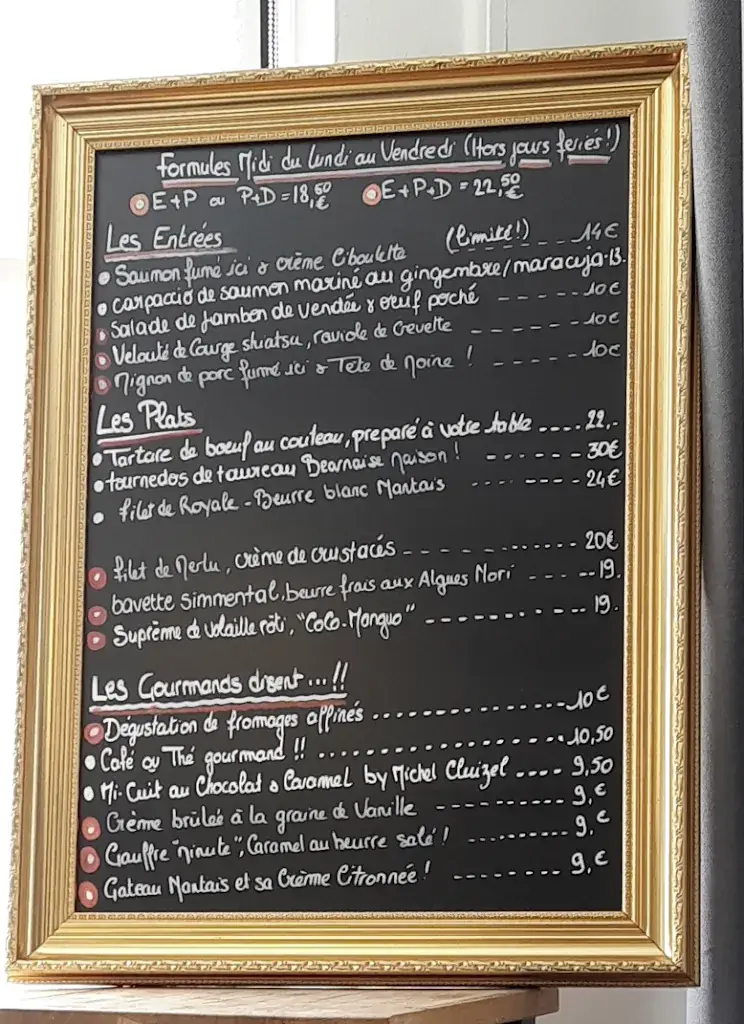 Formules Midi du lundi au Vendredi (Hors jours feriés!)
E+P ou P+D = 18,50 € E+P+D = 22,50 €
Les Entrées
• Saumon fumé ici & crème Ciboulette (limité!) - - - 14€
• carpaccio de saumon mariné au gingembre/maracuja-13.
• Salade de jambon de vendée & œuf poché - - - - - 10€
• Velouté de Courge shiatsu, raviole de Crevette - - - - - 10€
• Mignon de porc fumé ici & Tete de Moine ! - - - - - 10€
Les Plats
• Tartare de boeuf au couteau, preparé à votre table .... 22,-
• tournedos de taureau Bearnaise Maison ! - - - - - - 30€
• filet de Royale - Beurre blanc Nantais - - - - - - - - 24€
• filet de Merlu, crème de crustacés - - - - ........ 20€
• bavette simmental, beurre frais aux Algues Nori - - - -- 19.
• Suprème de volaille rôti, "CoCo-Manguo" - - - - - - - - - .. 19.
Les Gourmands disent ... !!
• Dégustation de fromages affinés .................. 10€
• Café ou Thé gourmand !! ..................... 10,50
• Mi-Cuit au Chocolat & Caramel by Michel Cluizel .... 9,50
• Crème brûlée à la graine de Vanille - - - - - - - - - - 9,€
• Gauffre "minute", Caramel au beurre salé ! ......... 9,€
• Gateau Nantais et sa Crème Citronnée ! - - - - - - - - 9,€